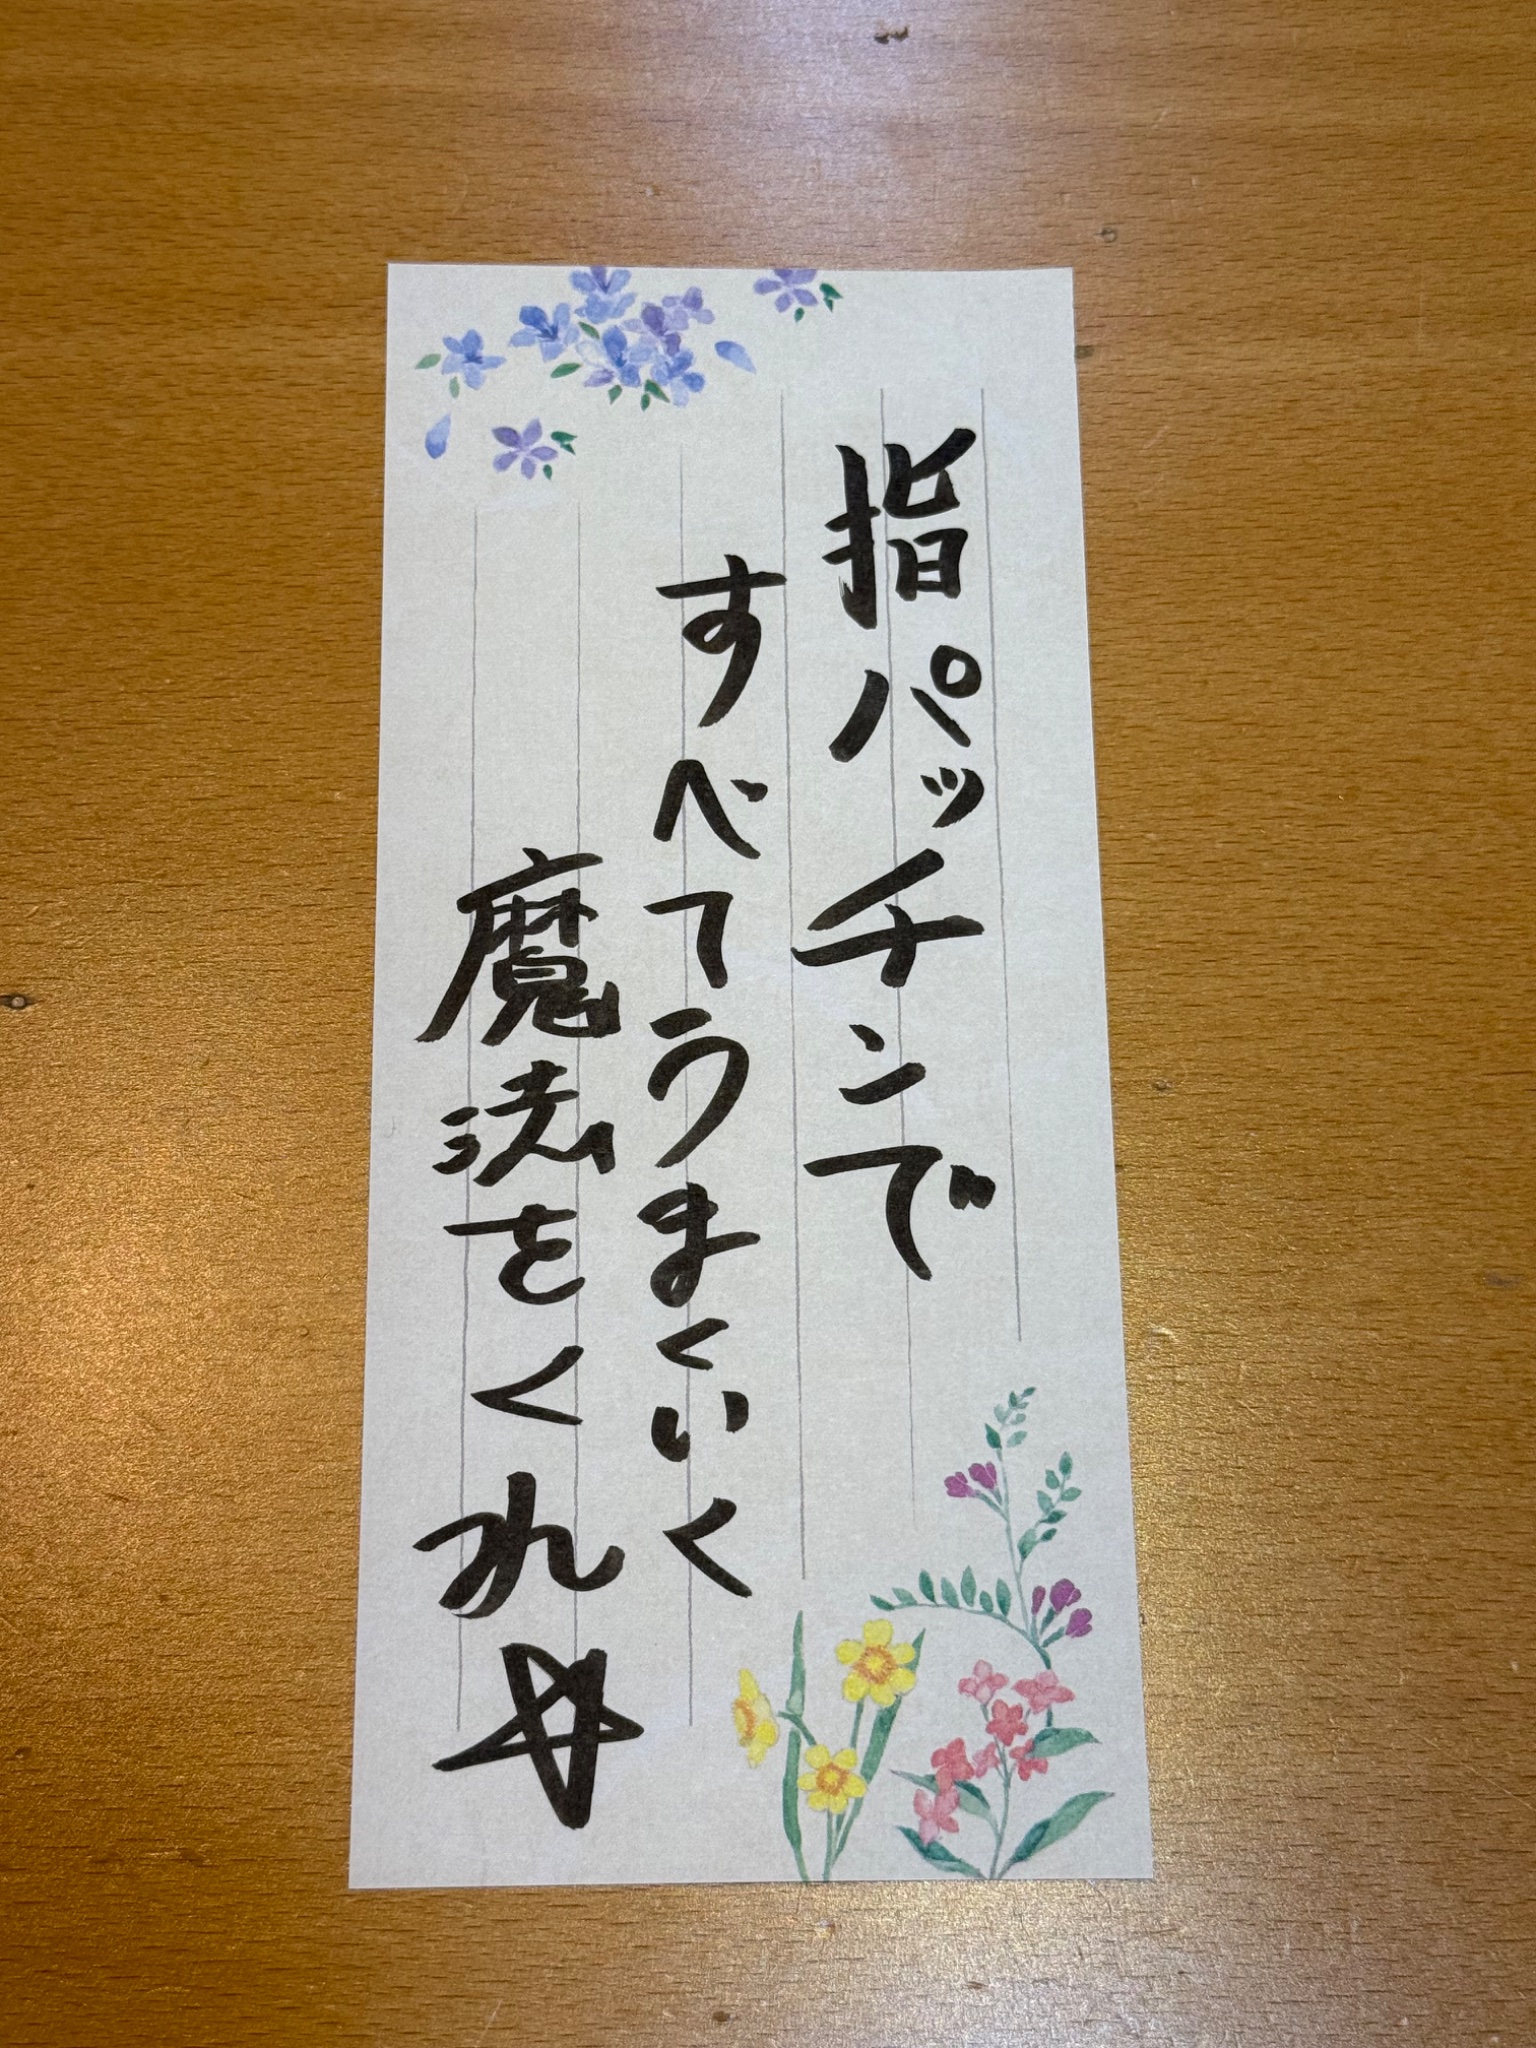 指パッチンで
すべてうまくいく
魔法をくれ☆